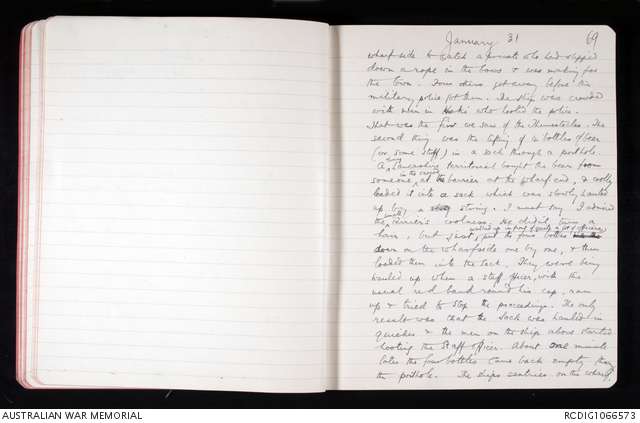 January 31 69
wharf side to catch a private who had slipped
down a rope in the bows & was making for
the town. Four others got away before the
military police got them. The ship was crowded
with men in khaki who hooted the police.
That was the first we saw of the Themistocles. The
second thing was the lifting of 4 bottles of beer
(or some stuff) in a sack through a porthole.
A Lancashire territorial bought the beer from
someone in the crowd at the barrier at the wharf end, & coolly
loaded it into a sack which was slowly hauled
up by a string. I must say I admired
the small Terrier's coolness. He didn't turn a
hair, but just walked up in front of and
put the four bottles
down on the wharfside one by one, & then
loaded them into the sack. They were being
hauled up when a staff officer, with the
usual red band round his cap, ran
up & tried to stop the proceedings. The only
result was that the sack was hauled in
quicker & the men on the ship above started
hooting the Staff officer. About one minute
later the four bottles came back empty thro
the porthole. The ships sentries on the wharf,
AUSTRALIAN WAR MEMORIAL
RCDIG1066573